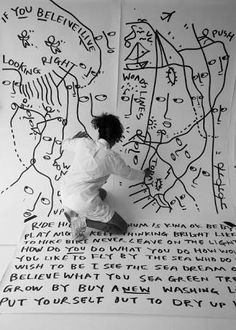 IF YOU BELEIVE I LIVE
PUSH
LOOKING
RIGHT
WOBBLY
LINES
RIDE HI
HUM IS KINDA OK BE DA
PLAY AND KEEP THINKING BRIGHT LIKE
TO HIKE BIKE NEVER LEAVE ON THE LIGHT
HOW DO YOU DO WHAT YOU DO, HOW
YOU LIKE TO FLY BY THE SEA WHO DO
WISH TO BE I SEE THE SEA DREAM O
BELIEVE WHAT YOU SEA GREEN TRE
GROW BY BUY A NEW WASHING L
PUT YOURSELF OUT TO DRY UP